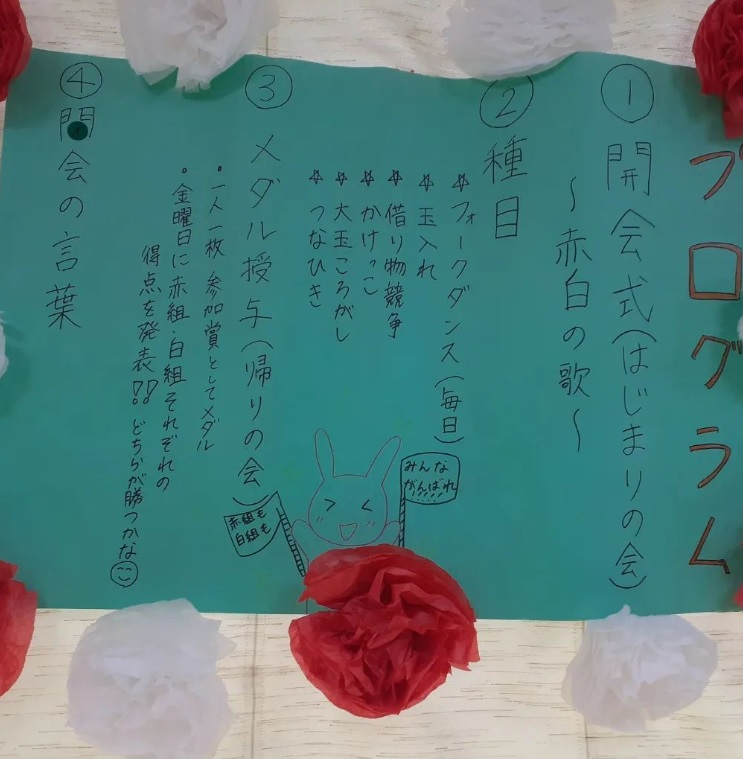 プログラム
① 開会式(はじまりの会)
～赤白の歌～
② 種目
☆フォークダンス(毎日)
☆玉入れ
☆借り物競争
☆かけっこ
☆大玉ころがし
☆つなひき
③ メダル授与(帰りの会)
・一人一枚 参加賞としてメダル
・金曜日に赤組・白組それぞれの
得点を発表!! どちらが勝つかな
④ 会の言葉
みんな
がんばれ
赤組も
白組も